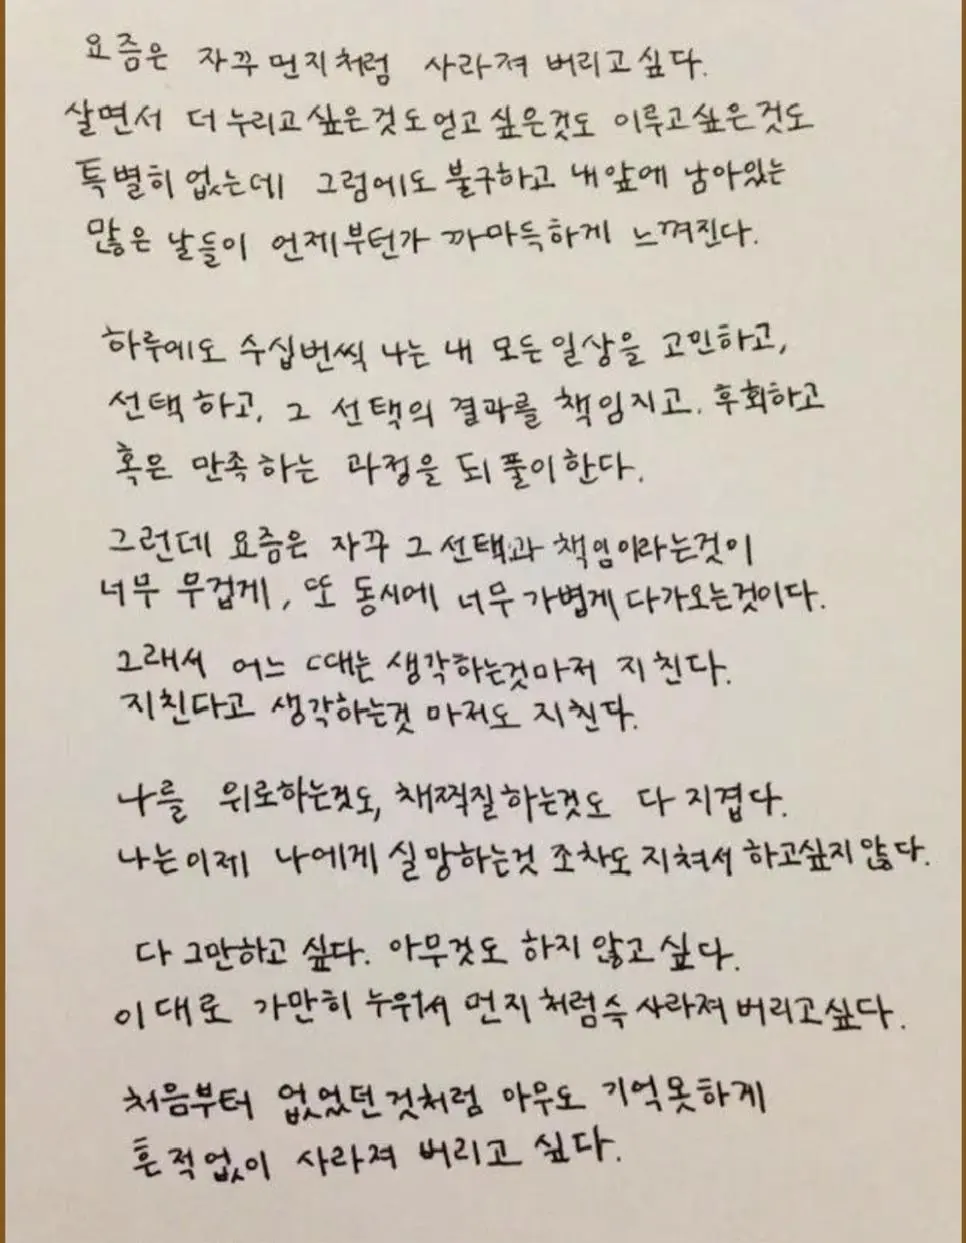 요즘은 자꾸 먼지처럼 사라져 버리고싶다.
살면서 더 누리고싶은것도얻고싶은것도 이루고싶은것도
특별히없는데 그럼에도 불구하고 내앞에 남아있는
많은 날들이 언제부턴가 까마득하게 느껴진다.
하루에도 수십번씩 나는 내 모든일상을 고민하고,
선택하고, 그 선택의 결과를 책임지고. 후회하고
혹은 만족하는 과정을 되풀이한다.
그런데 요즘은 자꾸 그선택과 책임이라는것이
너무 무겁게, 또 동시에 너무가볍게다가오는것이다.
그래서 어느 때는 생각하는것마저 지친다.
지친다고 생각하는것 마저도 지친다.
나를 위로하는것도, 채찍질하는것도 다 지겹다.
나는이제 나에게 실망하는것 조차도지쳐서 하고싶지않다.
다 그만하고 싶다. 아무것도 하지않고싶다.
이대로 가만히 누워서 먼지처럼슥사라져버리고싶다.
처음부터 없었던것처럼 아무도 기억못하게
흔적없이 사라져 버리고 싶다.